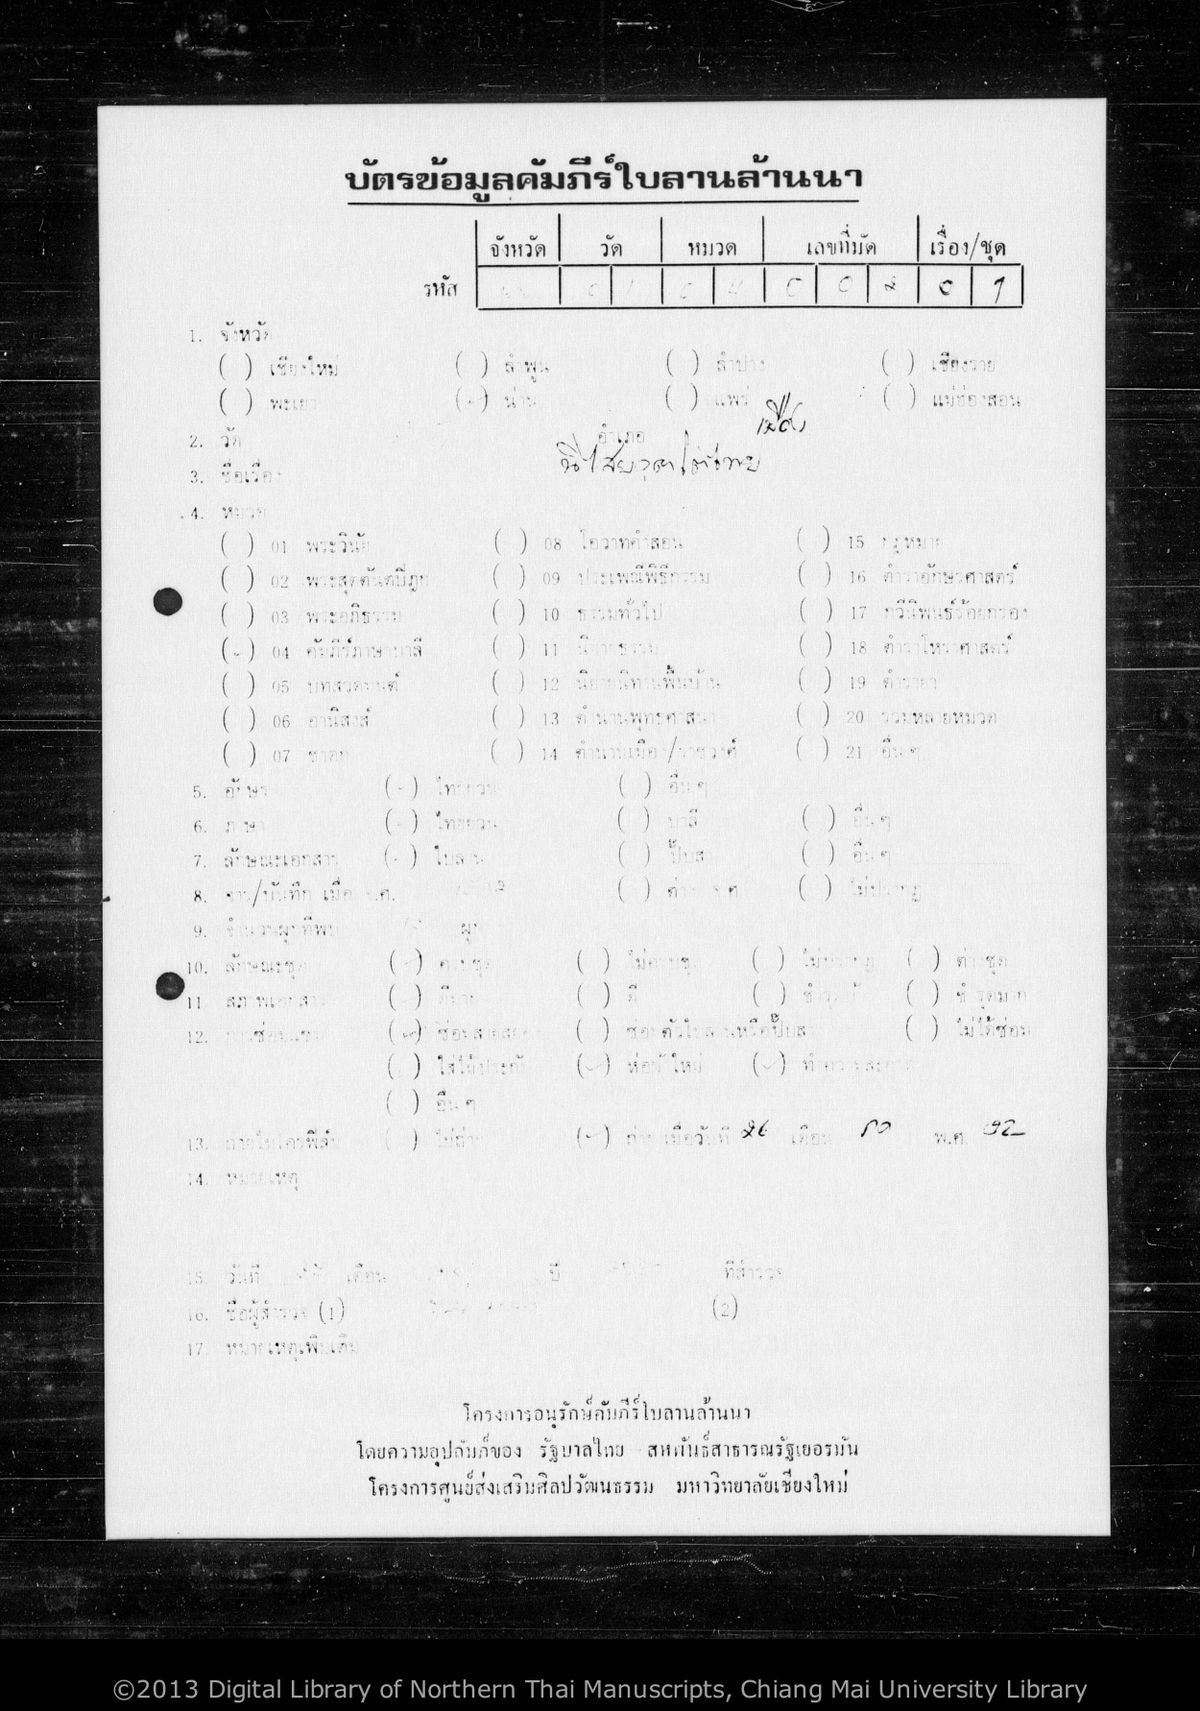 บัตรข้อมูลคัมภีร์ใบลานล้านนา
จังหวัด วัด หมวด เลขที่มัด เรื่อง/ชุด
รหัส 0 1 0 4 0 0 2 0 1
1. จังหวัด
( ) เชียงใหม่ ( ) ลำพูน ( ) ลำปาง ( ) เชียงราย
( ) พะเยา (-) น่าน ( ) แพร่ ( ) แม่ฮ่องสอน
2. วัด อำเภอ เมือง
3. ชื่อเรื่อง
4. หมวด
( ) 01 พระวินัย ( ) 08 โอวาทคำสอน ( ) 15 กฎหมาย
( ) 02 พระสุตตันตปิฎก ( ) 09 ประเพณีพิธีกรรม ( ) 16 ตำราอักษรศาสตร์
( ) 03 พระอภิธรรม ( ) 10 ธรรมทั่วไป ( ) 17 กวีนิพนธ์ร้อยกรอง
(-) 04 คัมภีร์ภาษาบาลี ( ) 11 นิยายธรรม ( ) 18 ตำราโหราศาสตร์
( ) 05 บทสวดมนต์ ( ) 12 นิยายนิทานพื้นบ้าน ( ) 19 ตำรายา
( ) 06 อานิสงส์ ( ) 13 ตำนานพุทธศาสนา ( ) 20 รวมหลายหมวด
( ) 07 ชาดก ( ) 14 ตำนานเมือง/ราชวงศ์ ( ) 21 อื่นๆ
5. อักษร (-) ไทยยวน ( ) อื่นๆ
6. ภาษา (-) ไทยยวน ( ) บาลี ( ) อื่นๆ
7. ลักษณะเอกสาร (-) ใบลาน ( ) ปั๊บสา ( ) อื่นๆ
8. จาร/บันทึก เมื่อ จ.ศ. ( ) ( ) ไม่ปรากฏ
9. จำนวนผูกที่พบ ผูก
10. ลักษณะชุด (-) ครบชุด ( ) ไม่ครบชุด ( ) ไม่ปรากฏ ( ) ต่างชุด
11. สภาพเอกสาร (-) ดีมาก ( ) ดี ( ) ชำรุด ( ) ชำรุดมาก
12. การซ่อมแซม (-) ซ่อมสายสยอง ( ) ซ่อมตัวใบลานหรือปั๊บสา ( ) ไม่ได้ซ่อม
( ) ใส่ไม้ประกับ (-) ห่อผ้าใหม่ (-) ทำความสะอาด
( ) อื่นๆ
13. ถ่ายไมโครฟิล์ม ( ) ไม่ถ่าย (-) ถ่ายเมื่อวันที่ 26 เดือน พ.ศ.
14. หมายเหตุ
15. วันที่ เดือน ปี ที่สำรวจ
16. ชื่อผู้สำรวจ (1) (2)
17. หมายเหตุเพิ่มเติม
โครงการอนุรักษ์คัมภีร์ใบลานล้านนา
โดยความอุปถัมภ์ของ รัฐบาลไทย - สหพันธ์สาธารณรัฐเยอรมัน
โครงการศูนย์ส่งเสริมศิลปวัฒนธรรม มหาวิทยาลัยเชียงใหม่
©2013 Digital Library of Northern Thai Manuscripts, Chiang Mai University Library